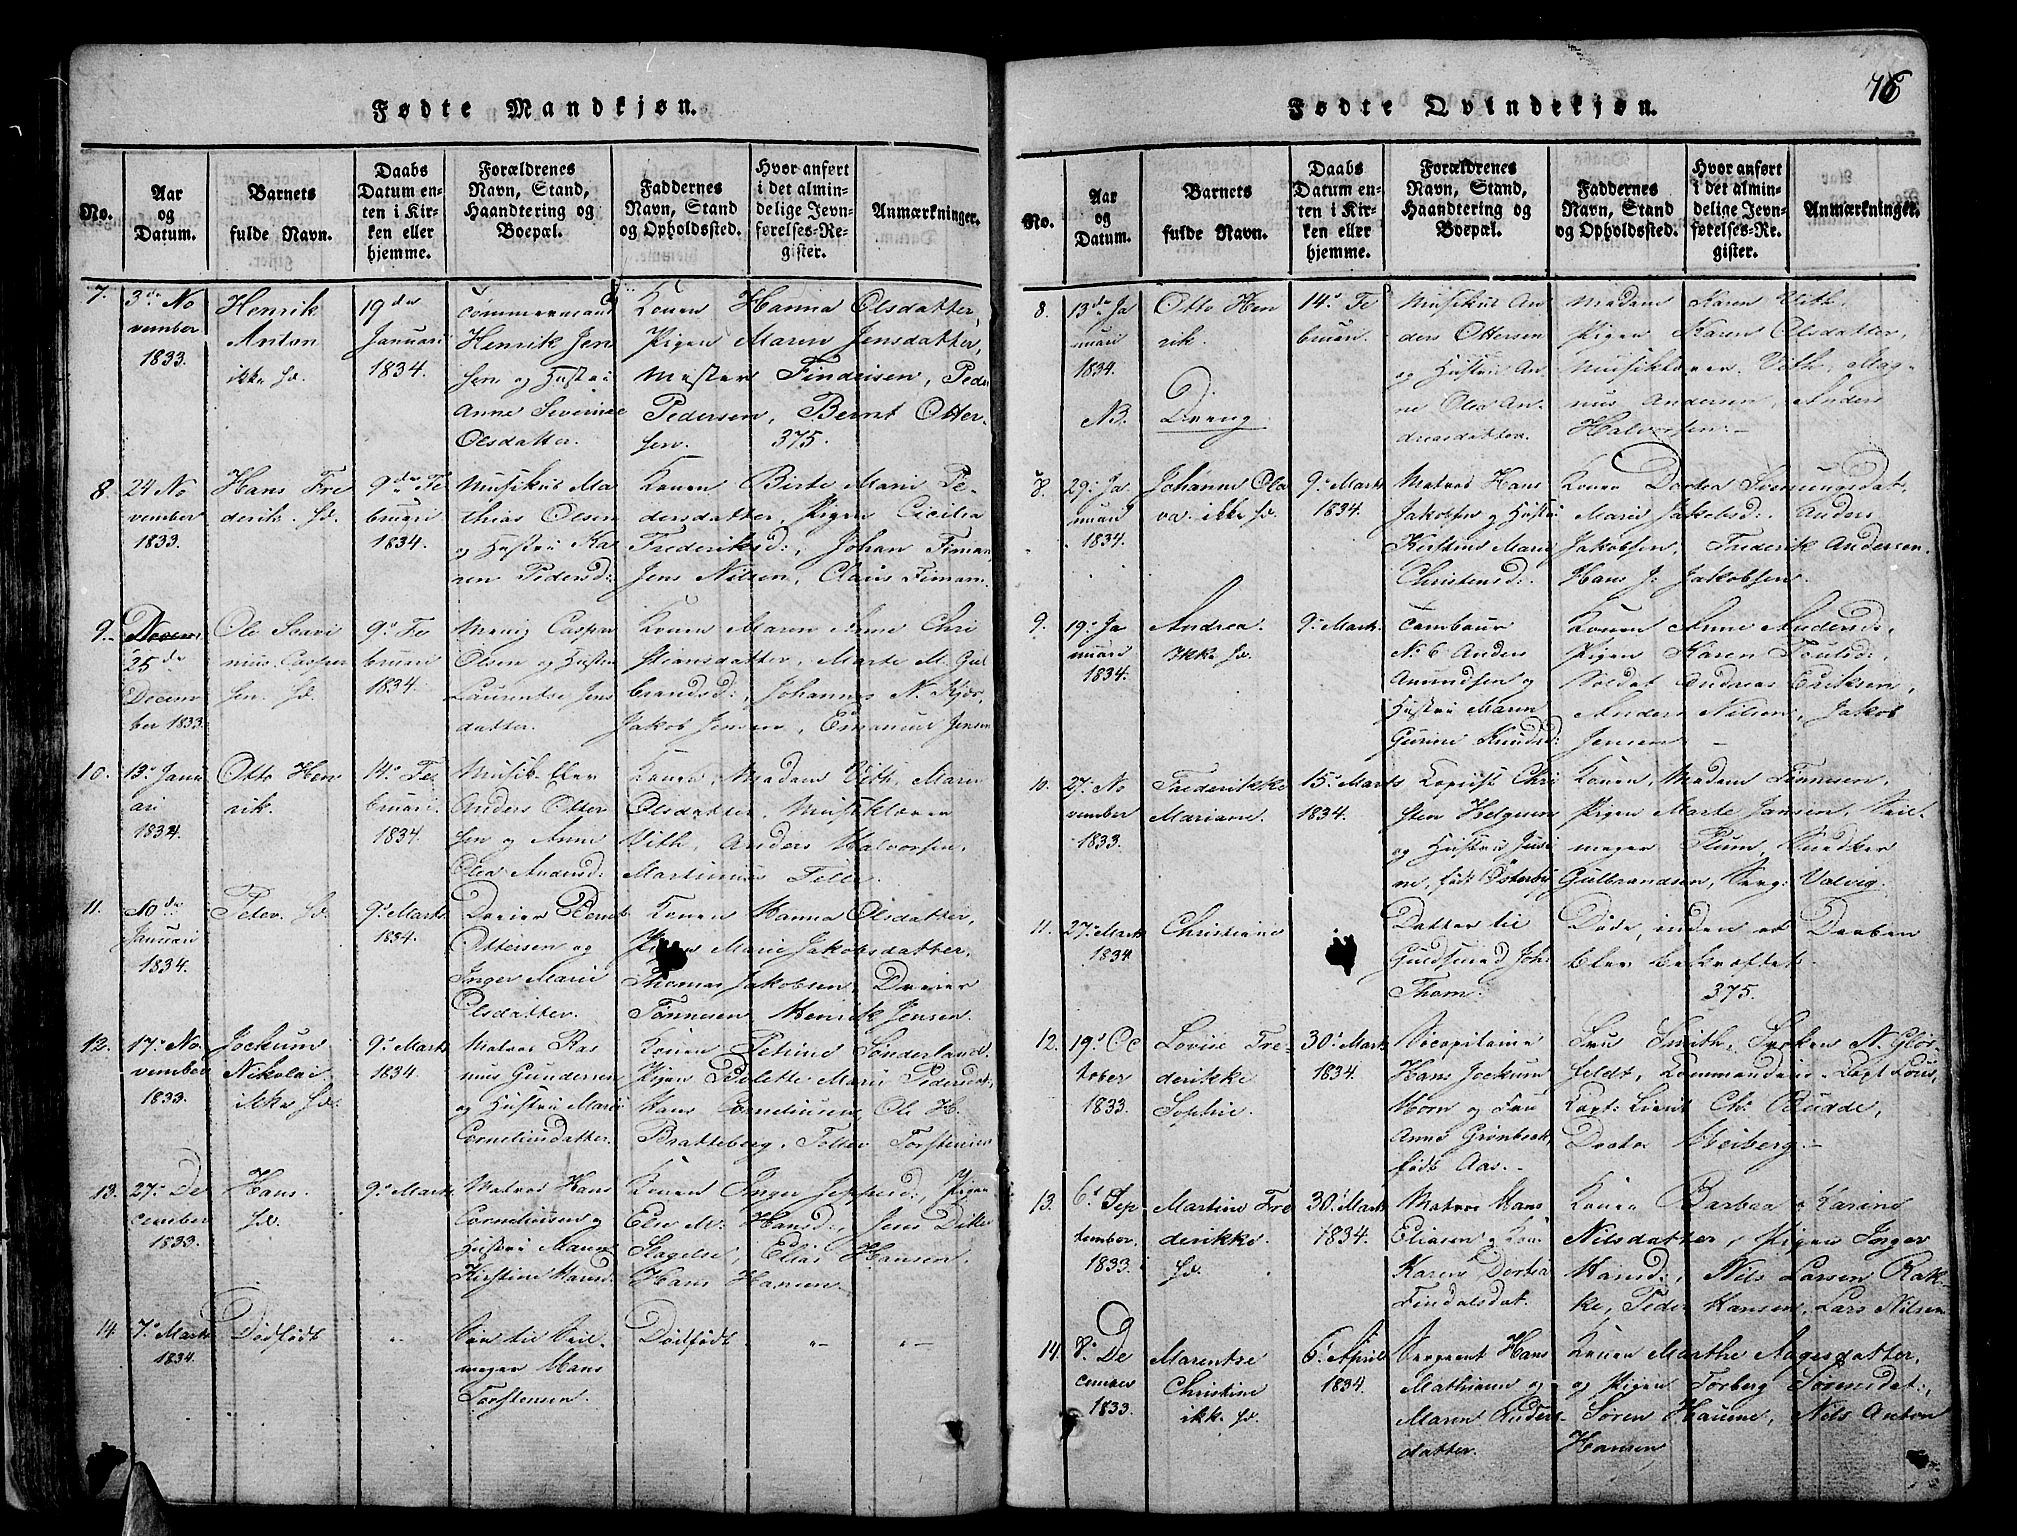 76
Fødte Mandkjøn.
No.
Aar
og
Datum.
Barnets
fulde Navn.
Daabs
Datum en-
ten i Kir-
ken eller
hjemme.
Forældrenes
Navn, Stand,
Haandtering og
Boepæl.
Faddernes
Navn, Stand
og Opholdssted.
Hvor anført
i det almin-
delige Jevn-
førelses-Re-
gister.
Anmærkninger.
7.
3de No
vember
1833.
Henrik
Anton
ikke hd.
19de
Januari
1834.
Tømmermand
Henrik Jen
sen og Hustru
Anne Severine
Olsdatter.
Konen Hanna Olsdatter,
Pigen Maren Jensdatter,
Mester Findeisen, Peder
Pedersen, Bernt Otter-
sen. 375.
8.
24 No
vember
1833.
Hans Fre
derik. hd.
9de Fe
bruari
1834.
Musikus Ma
thias Olsen
og Hustru Ka
ren Pedersd:
Konen Birte Marie Pe-
dersdatter, Pigen Cicilia
Frederiksd:, Johan Timan,
Jens Nilsen, Claus Timan.
9.
25de
Decem
ber 1833.
Ole Casper
sen. hd.
9d Fe
bruari
1834.
Casper
Olsen og Hustru
Laurentse Jens
datter.
Konen Maren Anne Chri
stiansdatter, Marte M. Gul
brandsd:, Johannes N. Kjær,
Jakob Jensen, Emanuel Jensen
10.
13d Janu
ari
1834.
Otto Hen
rik.
14d Fe
bruari
1834.
Musik Elev
Anders Otter
sen og Anne
Olea Andersd:
Konen, Madam Vith, Maren
Olsdatter, Musiklærer
Vith, Anders Halvorsen,
Martinus Telle.
11.
Januari
1834.
Peter. hd.
9d Marts
1834.
Dreier Bernt
Ottersen og
Inger Marie
Olsdatter.
Konen Hanna Olsdatter,
Pigen Marie Jakobsdatter,
Thomas Jakobsen, Dreier
Tønnesen Henrik Jensen.
12.
17d No
vember
1833.
Jockum
Nikolai
ikke hd.
9d Marts
1834.
Matros Ras
mus Gundersen
og Hustru Marie
Corneliusdatter.
Konen Petrine Sønderland,
Pigen Bolette Marie Pedersdat,
Hans Corneliusen, Ole H.
Bratteberg, Tollev Torstensen
13.
27d De
cember
1833.
Hans.
hd.
9d Marts
Matros Hans
Corneliusen og
Hustru Maren
Kirstine Hansd.
Konen Inger Jeppesd:, Pigen
Else M. Hansd:, Jens Dike
Slagelse, Elias Hansen,
Hans Hansen.
14.
7d Marts
1834.
Dødfødt
"
Søn til Seil-
mager Hans
Torstensen.
Dødfødt
"
"
Fødte Qvindekjøn.
No.
Aar
og
Datum.
Barnets
fulde Navn.
Daabs
Datum en-
ten i Kir-
ken eller
hjemme.
Forældrenes
Navn, Stand,
Haandtering og
Boepæl.
Faddernes
Navn, Stand
og Opholdssted.
Hvor anført
i det almin-
delige Jevn-
førelses-Re-
gister.
Anmærkninger.
8.
13de Ja
nuari
1834.
NB.
Otto Hen
rik.
Dreng
14d Fe
bruari.
Musikus An
ders Ottersen
og Hustru An
ne Olea An-
dreasdatter.
Madam Karen Vith,
Pigen Karen Olsdatter,
Musiklærer Vith, Mag-
nus Andersen, Anders
Halvorsen. -
8.
29d Ja
nuari
1834.
Johanne Ola
va. ikke hd.
9d Marts
1834.
Matros Hans
Jakobsen og Hustru
Kirstine Marie
Christensd:
Konen Dortea Svenungsdat,
Marie Jakobsd:, Anders
Jakobsen, Frederik Andersen.
Hans J: Jakobsen.
9.
19d Ja
nuari
1834.
Andrea.
Ikke hd.
9d Marts.
Tambour
No 6 Anders
Amundsen og
Hustru Maren
Gurine Knudsd:
Konen Anne Andersd:,
Pigen Karen Toelsd:,
Soldat Andreas Eriksen,
Anders Nilsen, Jakob
Jensen -
10.
27d No
vember
1833.
Frederikke
Mariane.
15d Marts
1834.
Kopiist Chri
sten Helgesen
og Hustru Jusi
ne, født Østerby
Konen, Madam Tønnesen,
Pigen Marte Jansen, Seil-
mager Plum, Snedker
Gulbrandsen, Serg: Valvig.
11.
27d Marts
1834.
Christiane
Datter til
Guldsmed Joh:
Thom.
Døde, inden at Daaben
blev bekræftet.
375.
12.
19d Oc
tober
1833.
Lovise Fre-
derikke
Sophie.
30d Marts
1834.
Søcapitaine
Hans Jockum
Horn og Fru
Anne Grønbeck,
født Aas. -
Fru Smith, Frøken N. Glør
feldt, Commandeur-Capt. Lous,
Capt: Lieut Ch: Budde,
Doctor Heiberg. -
13.
6d Sep
tember.
1833.
Martine Fre
derikke.
hd.
30d Marts
1834.
Matros Hans
Eliasen og Kone
Karen Dortea
Findalsdat.
Konen Barbra Karine
Nilsdatter, Pigen Inger
Hansd:, Nils Larsen Rak-
ke, Peder Hansen, Lars Nilsen
14.
8d De
cember
1833.
Marentse
Christine
ikke hd.
6d April
1834.
Sergeant Hans
Mathisen og
Maren Anders
datter.
Konen Marthe Aagesdatter,
og Pigen Torberg Sørensdat:,
Søren Haume, Nils Anton
Hansen